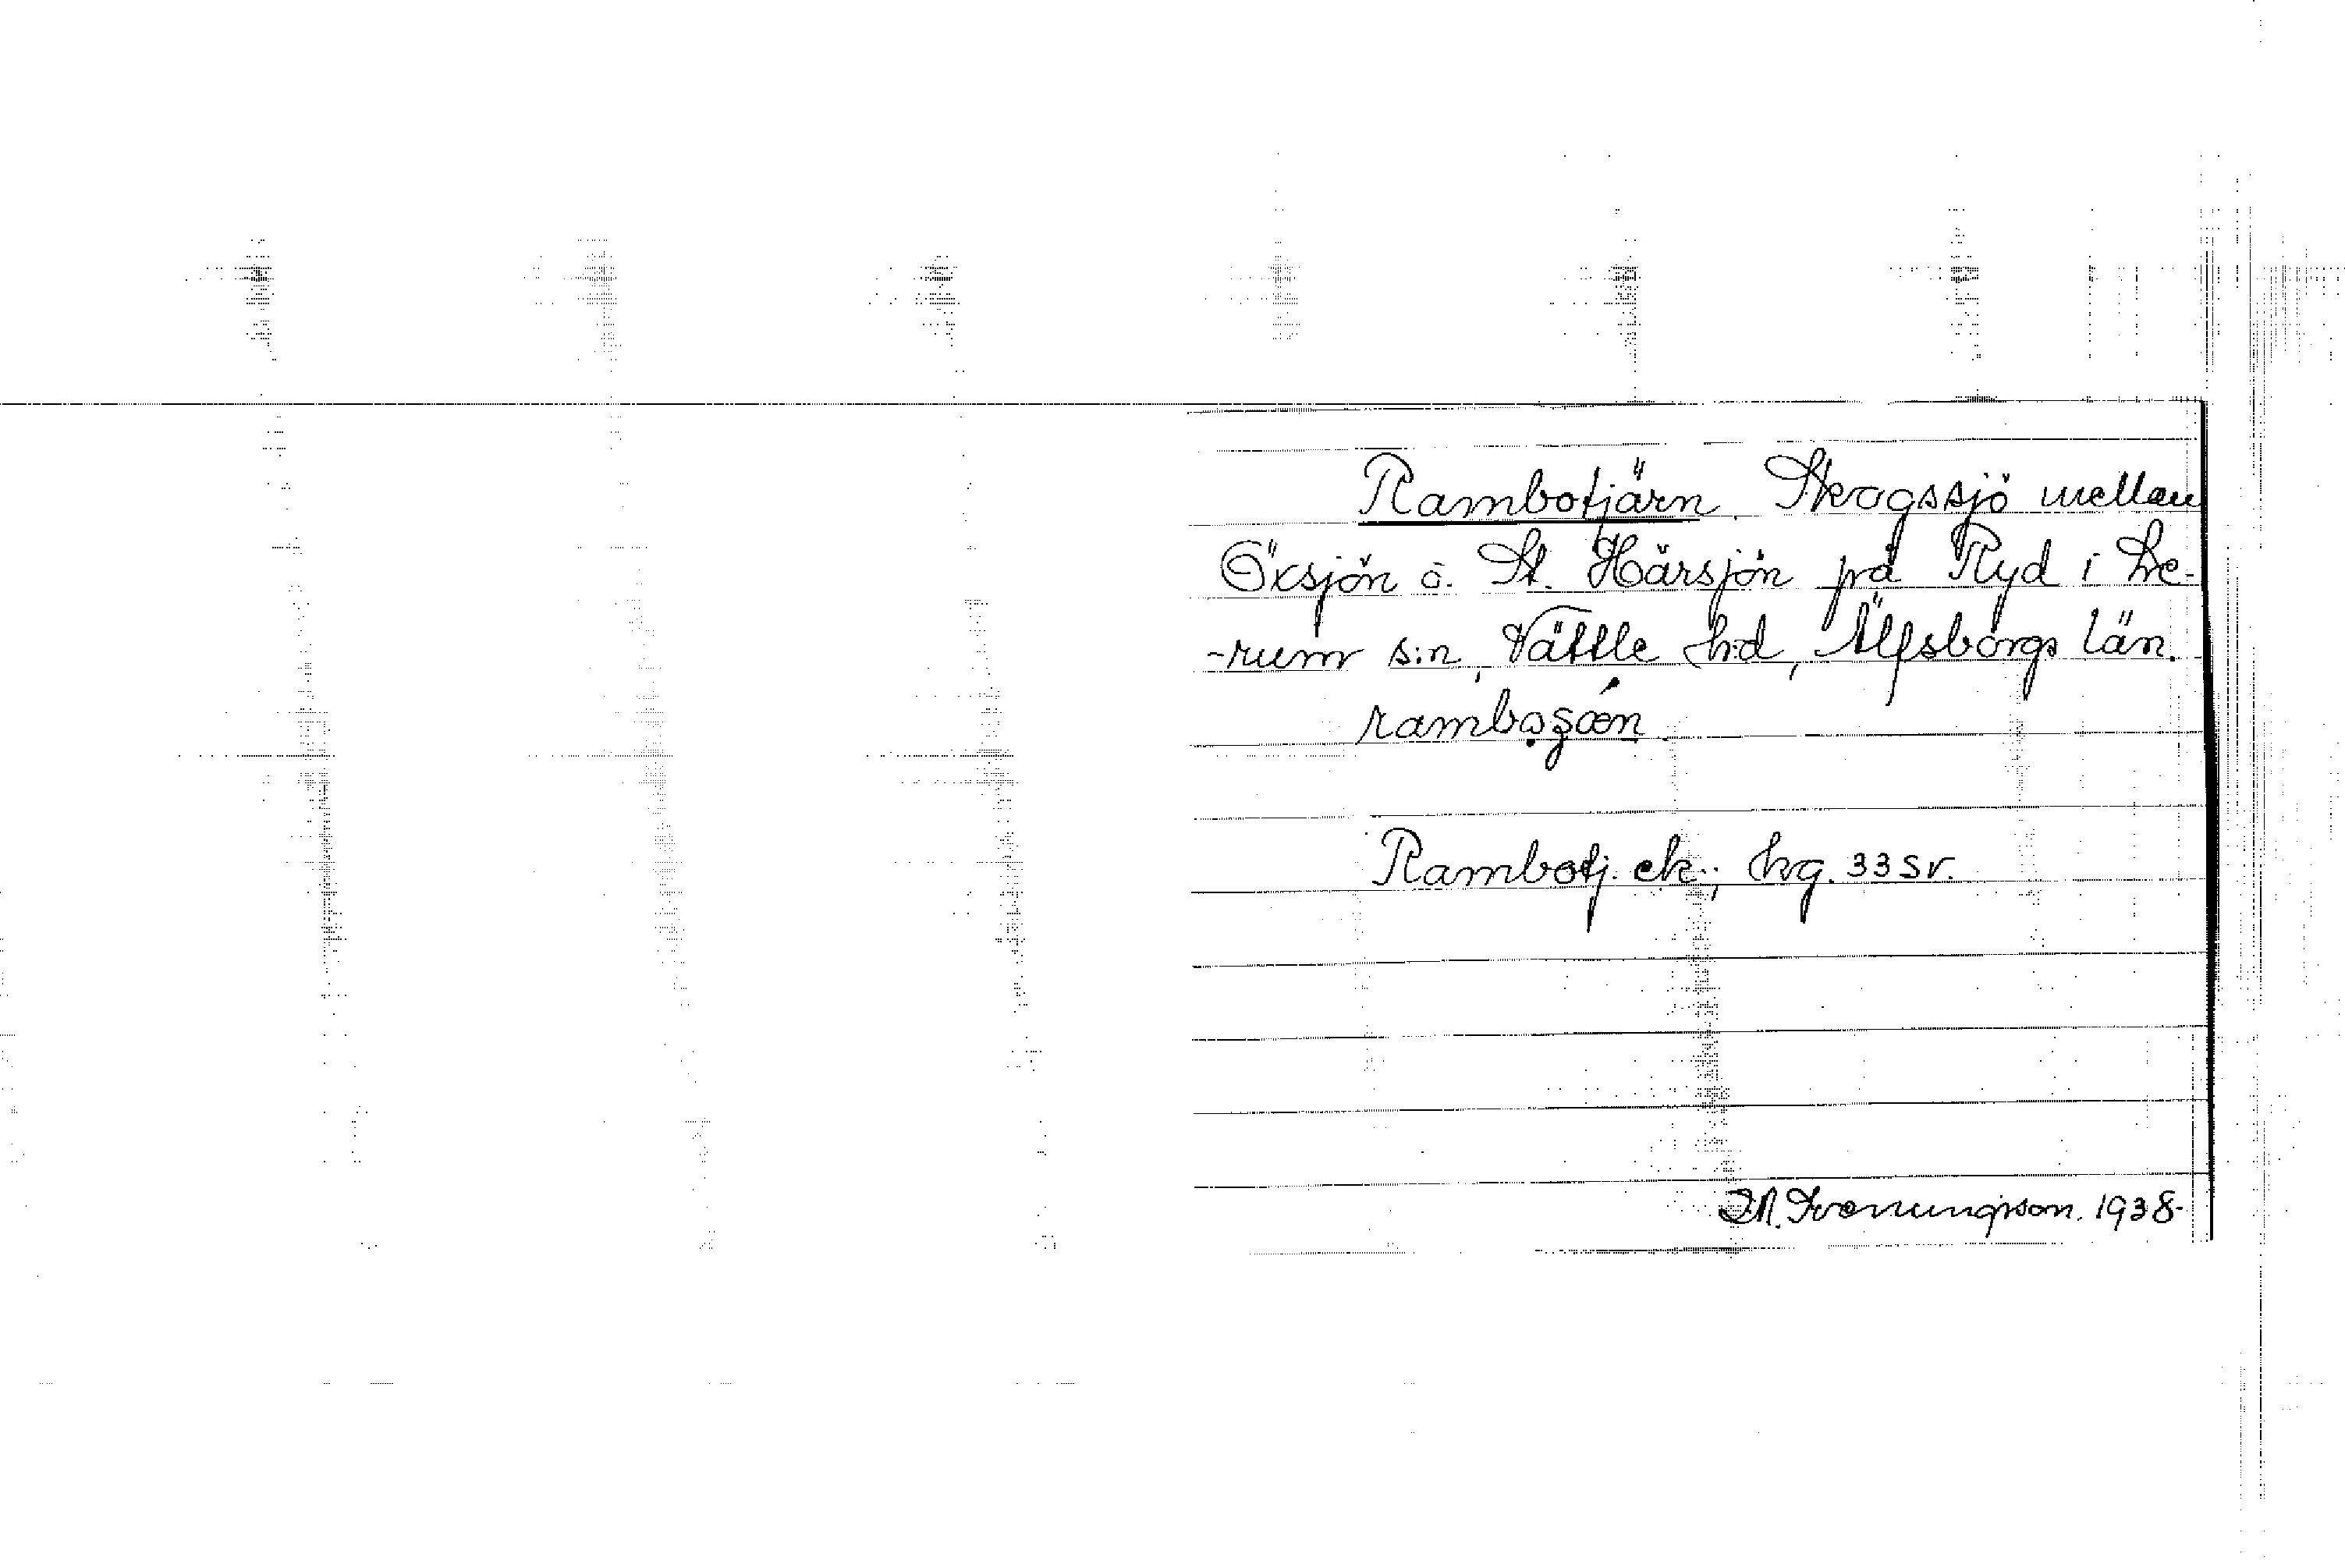 Rambotjärn. Skogssjö mellan
Öxsjön o. St. Härsjön på Ryd i Le-
-rum s:n, Vättle h:d, Älfsborgs län.
Rambotj. ek.; hg. 33 sv.
1938.